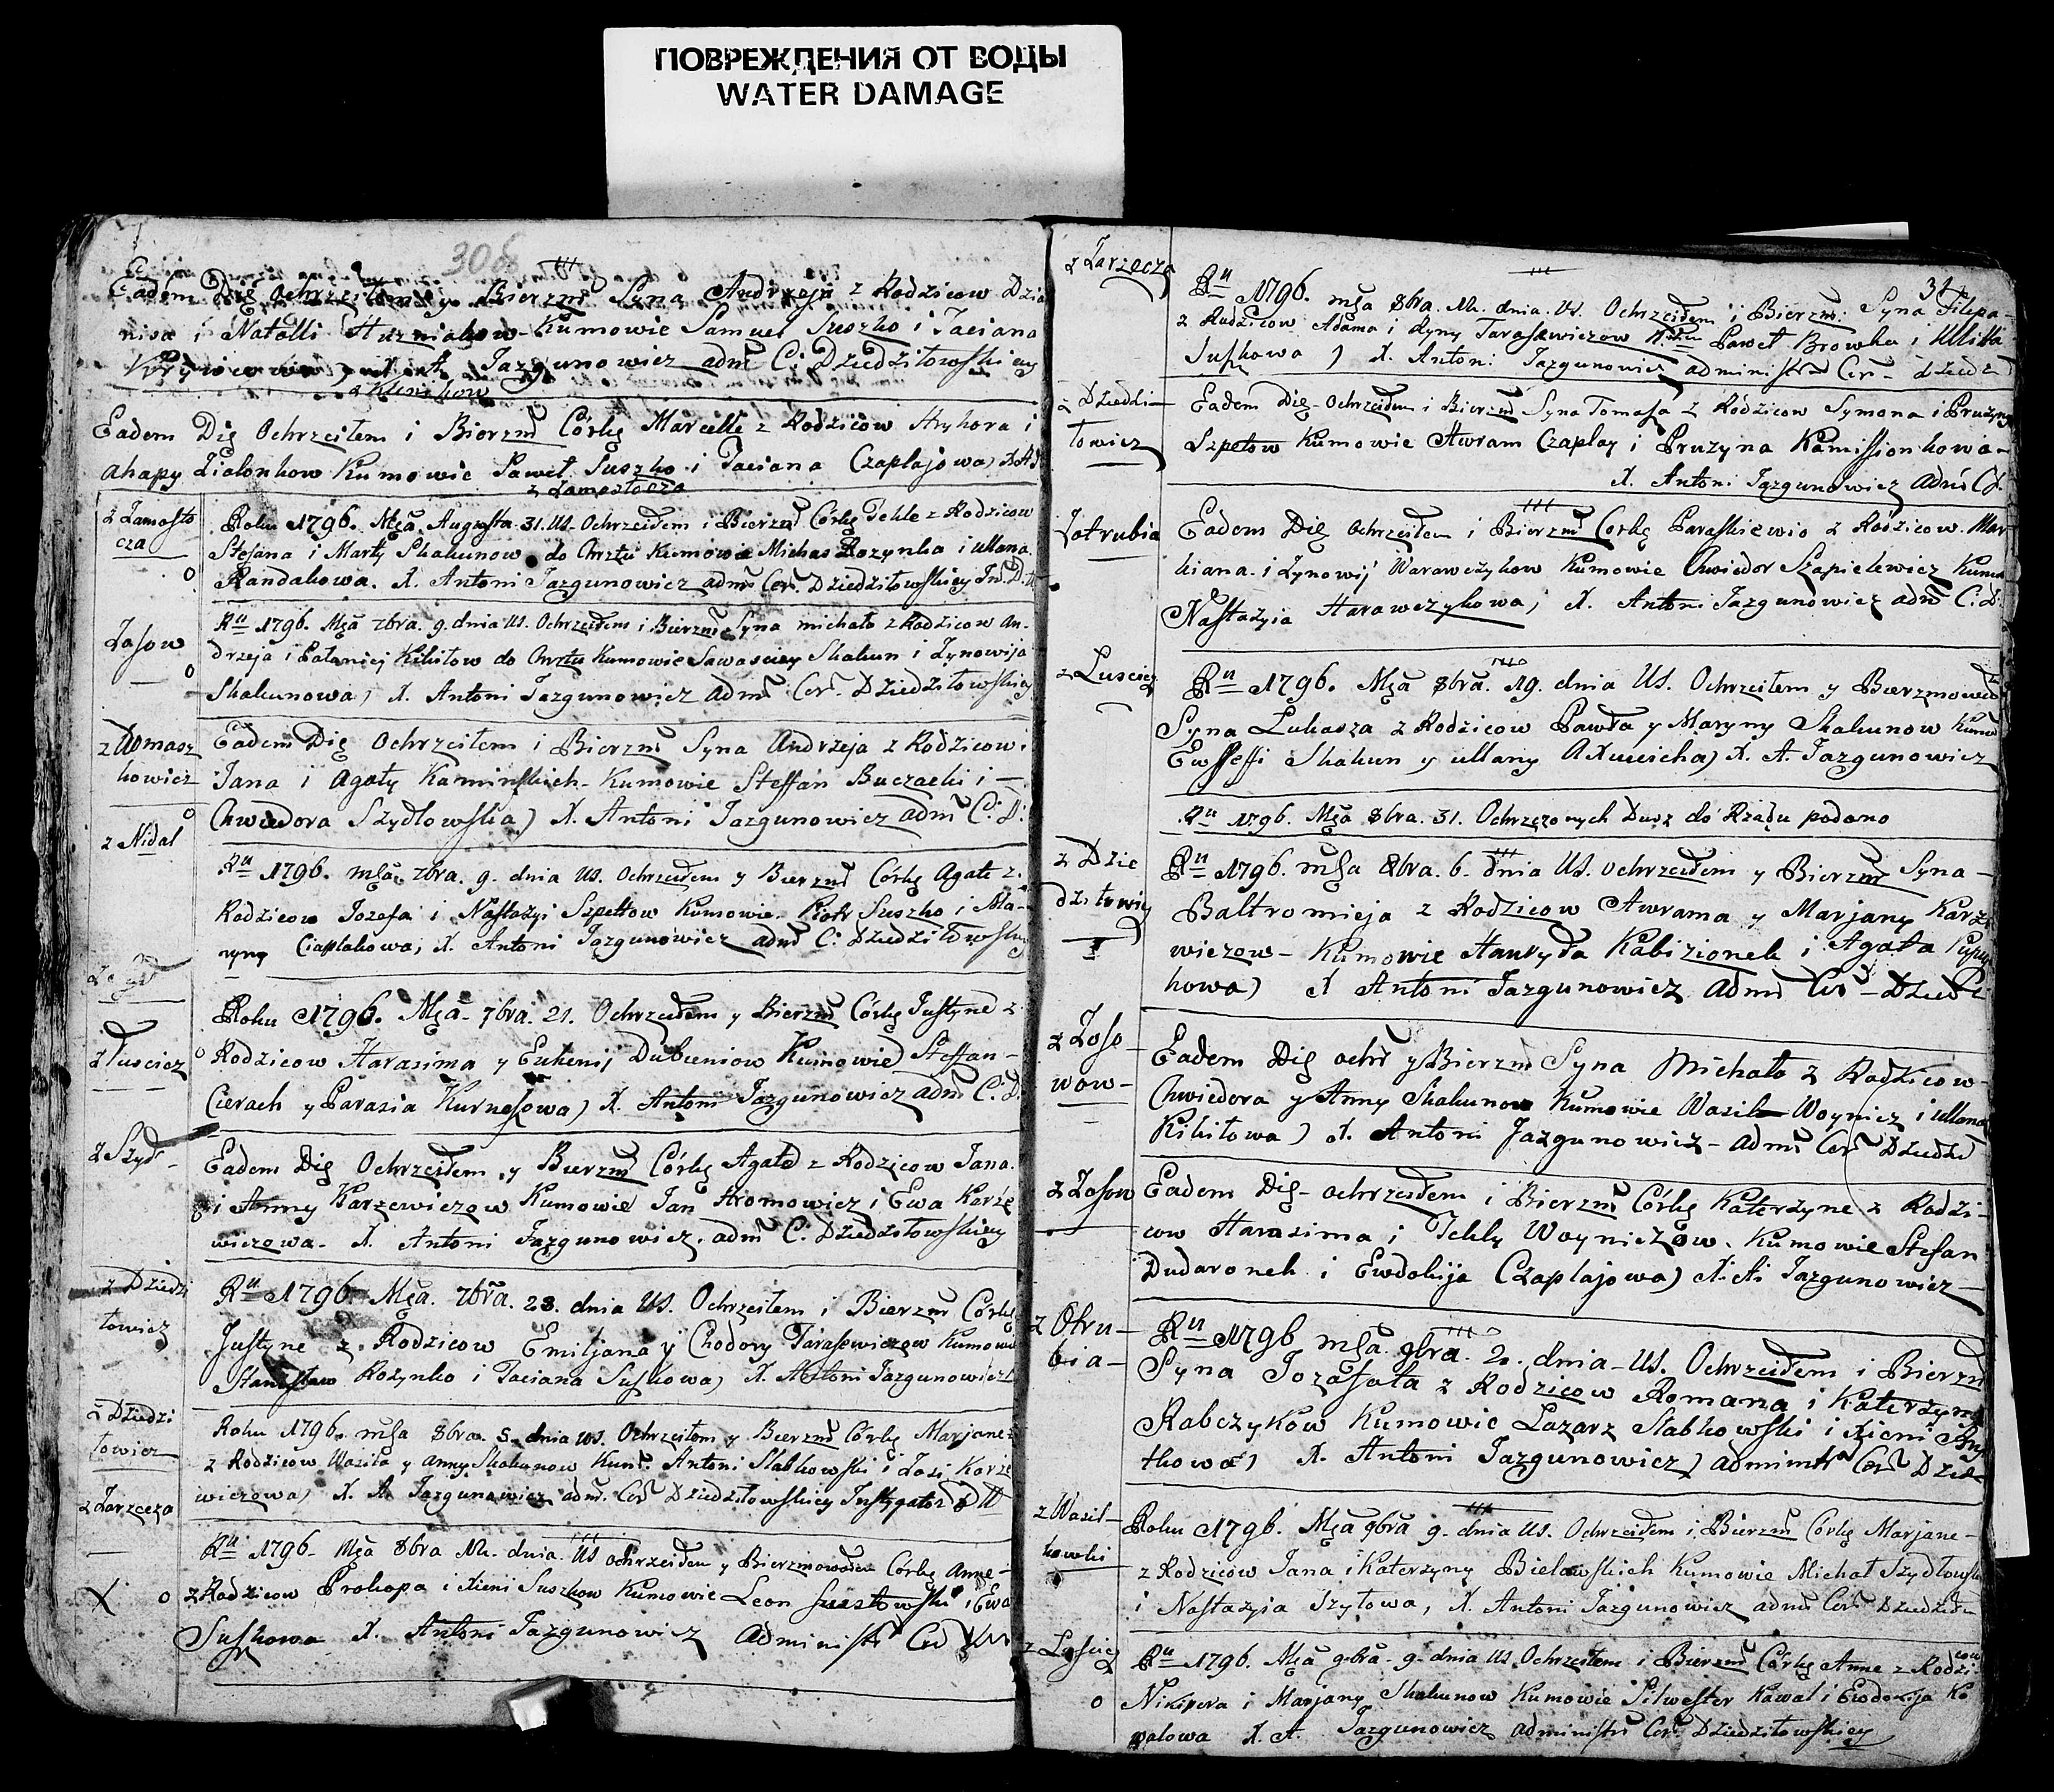 ПОВРЕЖДЕНИЯ ОТ ВОДЫ
WATER DAMAGE
30об
Eadem Die Ochrzciłem y Bierzm Syna Andrzeja z Rodzicow Dzia
nisa i Natalli Huzniakow Kumowie Samuel Suszko i Taciana
X A Jazgunowicz adm C: Dziedziłowskiey
z Klinikow
Eadem Die Ochrzciłem i Bierzm Córkę Marcelle z Rodziców Hryhora i
Ahapy Zialonkow Kumowie Paweł Suszko i Taciana Czaplajowa)
z Zamostocza
z Zamosto
cza
Roku 1796. Mça Augusta 31. Us. Ochrzciłem i Bierzm Córkę Tekle z Rodzicow
Stefana i Marty Skakunow do Chrztu Kumowie Michas Rozynko i Ullana
Randakowa. X. Antoni Jazgunowicz adm Cer Dziedziłowskiey
Zosow
Ru 1796. Mça 7bra. 9. dnia Us. Ochrzciłem i Bierzm Syna michała z Rodzicow An-
drzeja i Pałaniej Kikitow do Chrztu Kumowie Sawasciey Skakun i Zynowija
Skakunowa) X. Antoni Jazgunowicz adm Cer Dziedziłowskiey
z Domasz
kowicz
Eadem Die Ochrzciłem i Bierzm Syna Andrzeja z Rodzicow
Jana i Agaty Kaminskich Kumowie Steffan Buczacki i
Chwiedora Szydłowska) X. Antoni Jazgunowicz adm C: D:
z Nidal
Ru 1796. mça 7bra. 9. dnia Us. Ochrzciłem y Bierzm Córkę Agate z
Rodzicow Jozefa i Nastazyi Szpettow Kumowie Piotr Suszko i Ma-
ryny Ciaplakowa, X. Antoni Jazgunowicz adm C: Dziedziłowskiey
z Łuscicz
Roku 1796. Mça 7bra. 21. Ochrzciłem y Bierzm Córkę Justyne z
Rodzicow Harasima y Euhenij Dubieniow Kumowie Steffan
Cierach y Parasia Kurnesowa) X. Antoni Jazgunowicz adm C: D.
z Szyd-
Eadem Die Ochrzciłem y Bierzm Córkę Agate z Rodzicow Jana
i Anny Karzewiczow Kumowie Jan Hromowicz i Ewa Karze
wiczowa. X. Antoni Jazgunowicz adm C: Dziedziłowskiey
z Dziedzi
łowicz
Ru 1796 Mça. 7bra. 28. dnia Us. Ochrzciłem i Bierzm Córkę
Justyne z Rodzicow Emiljana y Chodory Tarasewiczow Kumowie
Stanisław Rozynko i Taciana Suszkowa) X. Antoni Jazgunowicz
z Dziedzi
łowicz
Roku 1796. mça 8bra. 5. dnia us. Ochrzciłem y Bierzm Córkę Marjane
z Rodzicow Wasila y Anny Skakunow Kum: Antoni Slabkowski i Zosi Karze
wiczowa) X. A. Jazgunowicz adm. Cer Dziedziłowskiey
z Zarzecza
Ru 1796. Mça 8bra dnia Us ochrzciłem y Bierzmowałem Córkę Anne
X z Rodzicow Prokopa i Xieni Suszkow Kumowie Leon i Ewa
Suszkowa X. Antoni Jazgunowicz Administr Cer
z Zarzecza
31
Ru 1796. mça 8bra. dnia Us. Ochrzciłem i Bierzm: Syna Filipa
z Rodzicow Adama i Ryny Tarasewiczow Kum Paweł Browka i Ullita
Suszkowa) X. Antoni Jazgunowicz administr Cer-
z Dziedzi-
łowicz
Eadem Die Ochrzciłem i Bierzm Syna Tomasza z Rodzicow Symona i Pruzyny
Szpetow Kumowie Awram Czaplay i Pruzyna Kamissionkowa-
X. Antoni Jazgunowicz Adm C.D.
Zatrubia
Eadem Die Ochrzciłem i Bierzm Corkę Paraskiewio z Rodzicow Mar
kiana i Zynowij Warawczykow Kumowie Chwiedor Szapielewicz Kuma
Nastazyia Harawczykowa, X. Antoni Jazgunowicz adm C: D:
z Łuscicz
Ru 1796. Mça 8bra. 19. dnia Us. Ochrzciłem y Bierzmowałem
Syna Łukasza z Rodzicow Pawła y Maryny Skakunow Kumow
Ewsseffi Skakun y ullany X. A. Jazgunowicz
Ru 1796. Mça 8bra. 31. Ochrzczonych Dusz do Rządu podano
z Dzie
dziłowicz
Ru 1796. mça 8bra. 6. dnia Us. ochrzciłem y Bierzm Syna
Baltromieja z Rodzicow Awrama y Marjany Karze
wiczow- Kumowie Hauryła Kabizionek i Agata
kowa) X Antoni Jazgunowicz Adm Cer-
z Zoso
wow-
Eadem Die ochr y Bierzm Syna Michała z Rodzicow
Chwiedora y Anny Skakunow Kumowie Wasil Woynicz i ullana
Kikitowa) X. Antoni Jazgunowicz- adm Cer Dziedzi
z Zosow
Eadem Die- ochrzciłem i Bierzm Córkę Katerzyne z Rodzi-
cow Harasima i Tekly Woyniczow. Kumowie Stefan
Dudaronek i Ewdokija Czaplajowa) X. A. Jazgunowicz
z Otru-
bia-
Ru 1796 mça. 9bra. 2. dnia Us. Ochrzciłem i Bierzm
Syna Jozafata z Rodzicow Romana i Katerzyny
Rabczykow Kumowie Lazarz Slabkowski i Xieni
tkowa) X. Antoni Jazgunowicz) administr Cer
z Wasil-
kowki
Roku 1796. Mça 9bra 9. dnia Us. Ochrzciłem i Bierzm Corkę Marjane-
z Rodzicow Jana i Katerzyny Bielawskich Kumowie Michał Szydłowski
i Nastazyia Szyłowa, X. Antoni Jazgunowicz adm Cer
z Łuscicz
Ru 1796. Mça 9bra. 9. dnia Us. Ochrzciłem i Bierzm Córkę Anne z Rodzicow
Nikipera i Marjany Skakunow Kumowie Silwester Kawal i Ewdokija Ko
walowa X. A. Jazgunowicz administr Cer Dziedziłowskiey